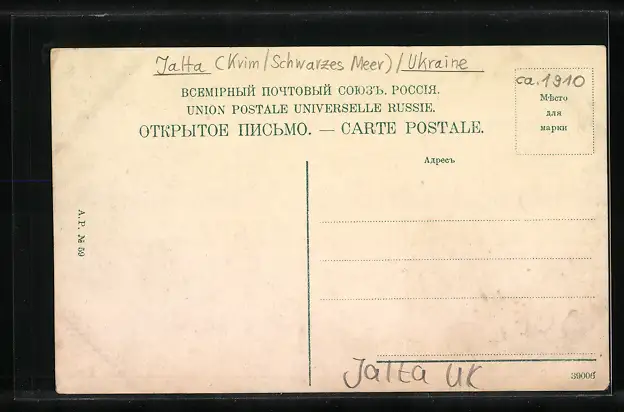 Jalta (Krim/Schwarzes Meer)/Ukraine
ca. 1910
ВСЕМІРНЫЙ ПОЧТОВЫЙ СОЮЗЪ. РОССІЯ.
UNION POSTALE UNIVERSELLE RUSSIE.
ОТКРЫТОЕ ПИСЬМО. — CARTE POSTALE.
Мѣсто
для
марки
Адресъ
А.Р. № 59
Jalta UK
39006